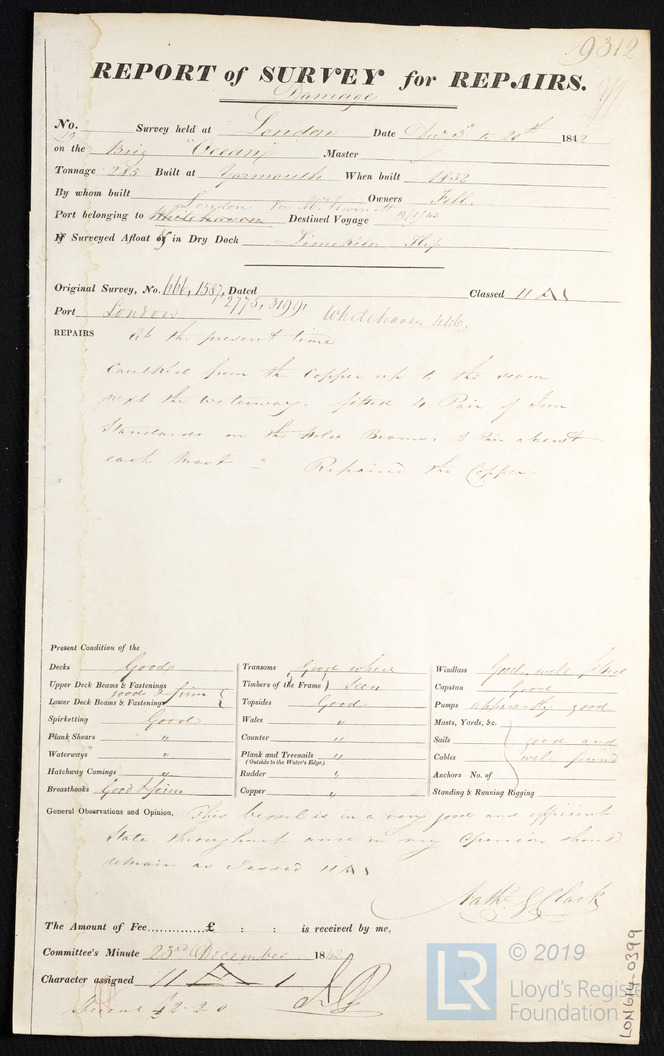 9312
REPORT of SURVEY for REPAIRS.
Damage
No. Survey held at London Date Decr 3rd to 20th 1842
on the Brig "Ocean" Master
Tonnage 285 Built at Yarmouth When built 1832
By whom built Owners Fell
London
Port belonging to Destined Voyage
If Surveyed Afloat or in Dry Dock Limekiln Slip
Original Survey, No. 666, 1587, Dated Classed 11 A 1
2775, 3199,
Port London Whitehaven 446.
REPAIRS At the present time
Caulked from the Copper up to the seam
next the waterway. fitted 4 Pair of Iron
Standards on the Hold Beams, 2 Pair abreast
each Mast – Repaired the Copper.
Present Condition of the
Decks Good
Upper Deck Beams & Fastenings
good & firm
Lower Deck Beams & Fastenings
Spirketting Good
Plank Shears "
Waterways "
Hatchway Comings "
Breasthooks Good & firm
Transoms Good where
Timbers of the Frame seen
Topsides Good
Wales "
Counter "
Plank and Treenails "
(Outside to the Water's Edge)
Rudder "
Copper "
Windlass Good, well
Capstan Good
Pumps apparently good
Masts, Yards, &c.
Sails good and
Cables well found
Anchors No. of
Standing & Running Rigging
General Observations and Opinion, This vessel is in a very good and efficient
State throughout and in my Opinion should
remain as Classed 11 A 1
Nathl G Clark
The Amount of Fee..............£ : : is received by me,
Committee's Minute 23rd December 1842
Character assigned 11 A 1
£2.2.0
LR
© 2019
Lloyd's Register
Foundation
LON614-0399